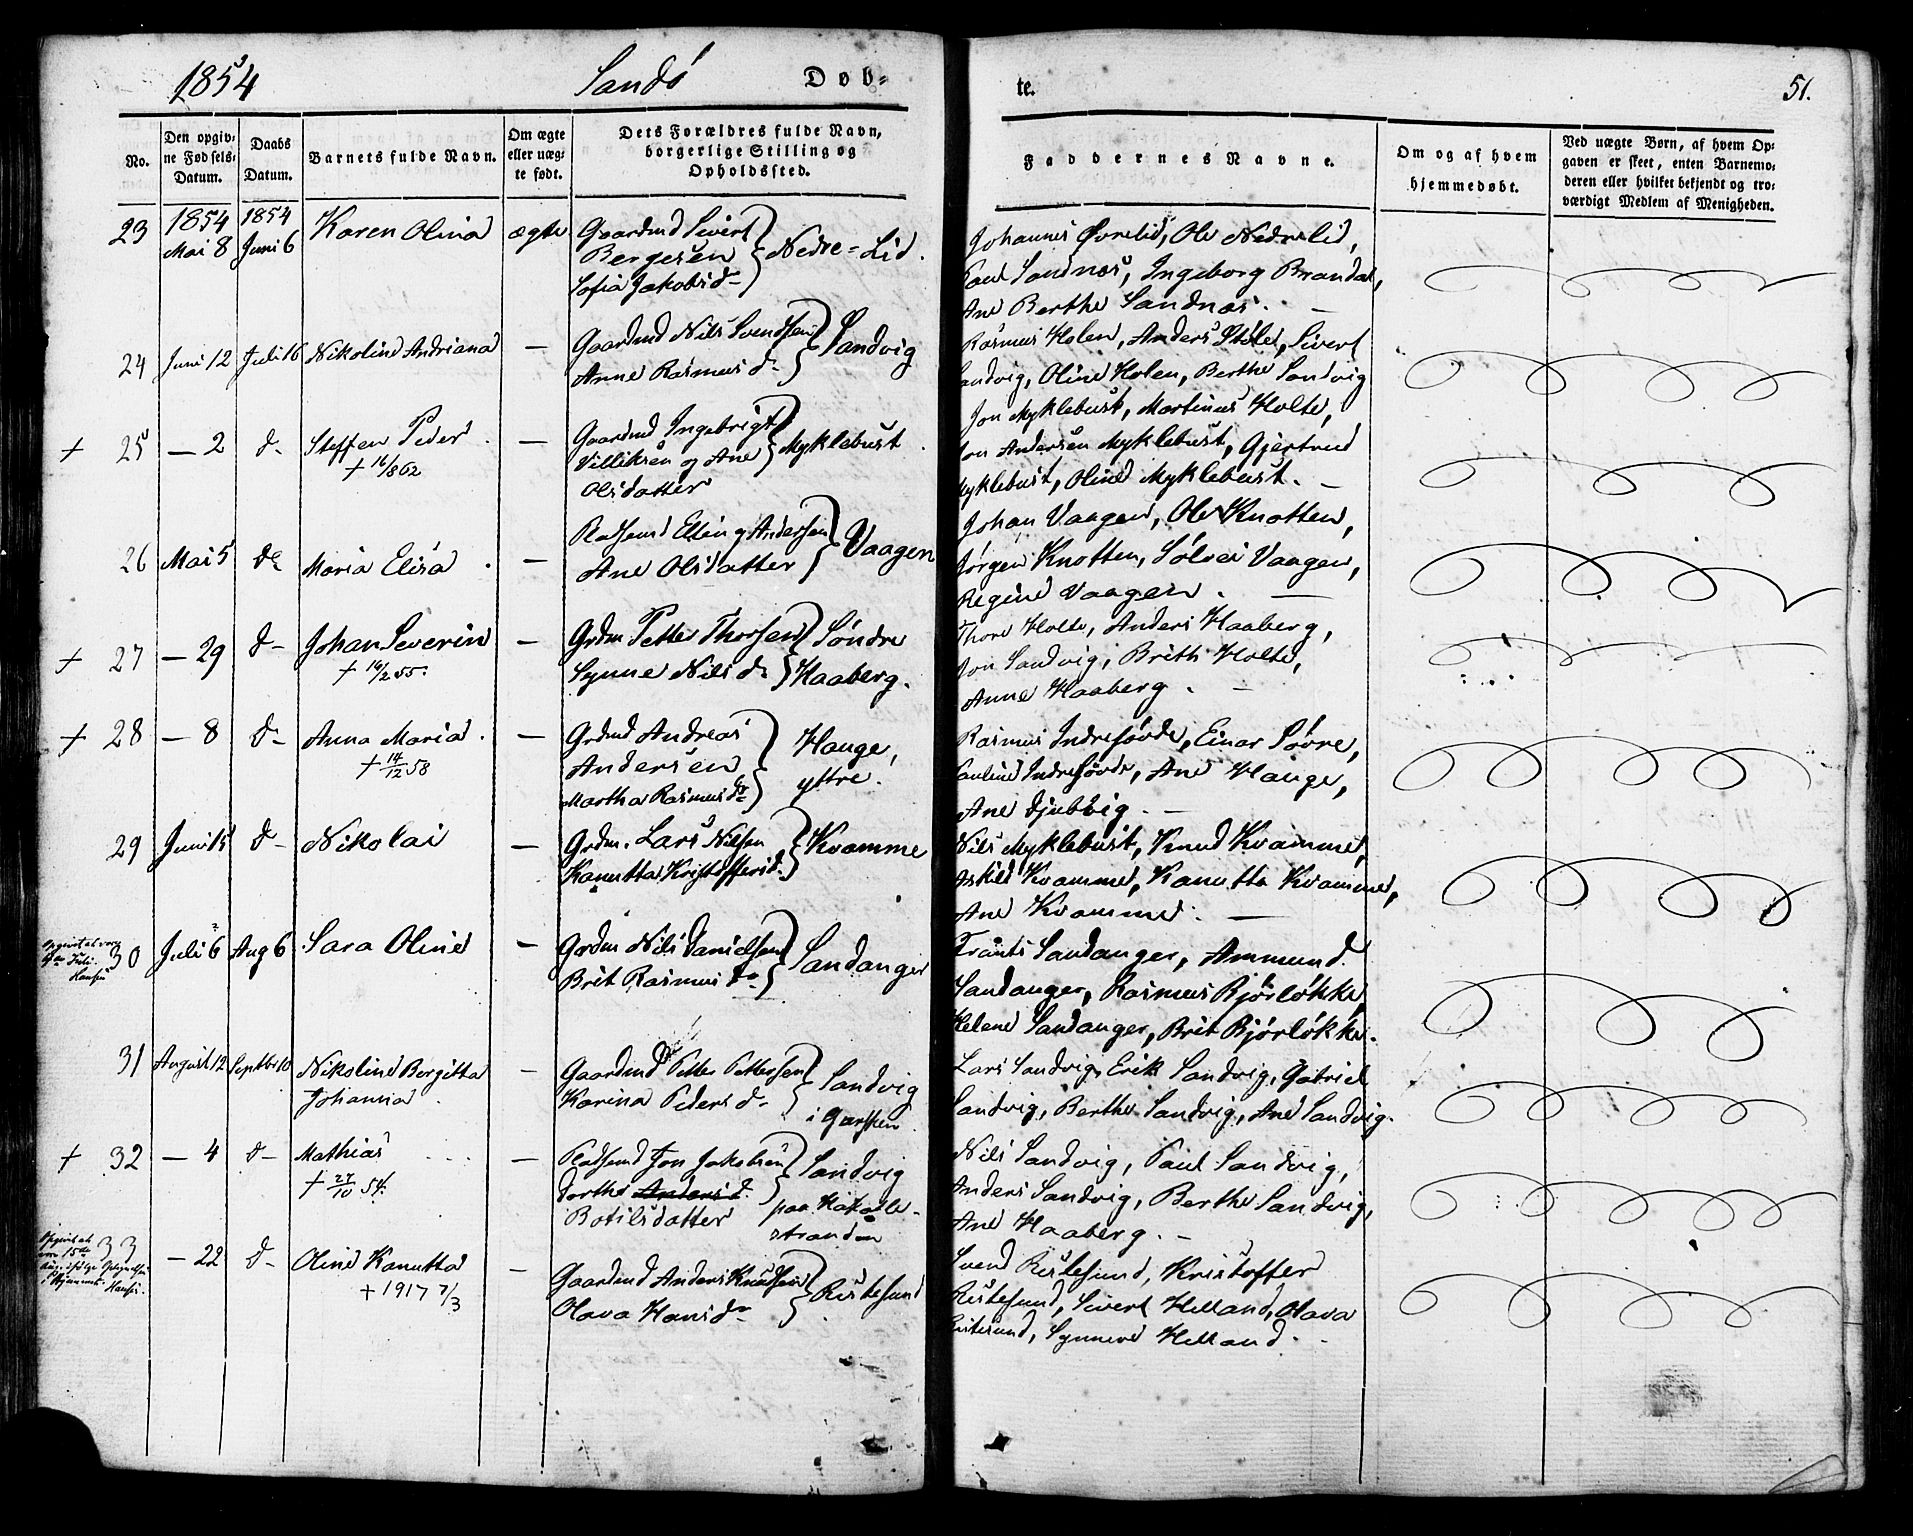 1854 Sandø Døb-
No. Den opgivne Fødsels-Datum. Daabs Datum. Barnets fulde Navn. Om ægte eller uægte født. Dets Forældres fulde Navn, borgerlige Stilling og Opholdssted.
23 1854 Mai 8 1854 Juni 6 Karen Olina ægte Gaardmd Sivert
Bergesen Nedre-Lid.
Sofia Jakobsd-
24 Juni 12 Juli 16 Nikoline Andriana — Gaardmd Nils Svendsen Sandvig
Anne Rasmusd-
+ 25 — 2 d- Steffen Peder — Gaardmd Ingebrigt
+ 16/8 62 Villiksen og Ane Myklebust.
Olsdatter
26 Mai 5 d- Maria Elisa — Pladsmd Elling Andersen Vaagen
Ane Olsdatter
+ 27 — 29 d- Johan Severin — Grdm. Petter Thorsen Søndre
+ 16/2 55. Synne Nilsd- Haaberg.
+ 28 — 8 d- Anna Maria. — Grdmd Andreas Hauge,
+ 14/12 58 Andersen yttre.
Martha Rasmusdr
29 Juni 15 d- Nikolai — Grdm. Lars Nilsen Kvamme
Kanutta Kristoffersd.
30 Juli 6 Aug 6 Sara Oline — Grdm Nils Danielsen Sandanger
Brit Rasmusd-
31 August 12 Septbr 10 Nikoline Bergitta — Gaardmd Petter Pettersen Sandvig
Johanna. Karina Pedersd- i Gursken.
+ 32 — 4 d- Mathias — Pladsmd Jon Jakobsen Sandvig
+ 27/10 54. Dorthe Andersd.
Botilsdatter paa Hakalle-
stranden
33 — 22 d- Oline Kanutta — Gaardmd Anders Knudsen Ristesund
+ 1917 7/3 Olava Hansd-
te. 51.
Faddernes Navne. Om og af hvem hjemmedøbt. Ved uægte Børn, af hvem Opgaven er skeet, enten Barnemoderen eller hvilket bekjendt og troværdigt Medlem af Menigheden.
Johannes Øvrelid, Ole Nedrelid,
Paul Sandnæs, Ingeborg Brandal,
Ane Berthe Sandnæs.
Rasmus Holen, Anders Støle, Sivert
Sandvig, Oline Holen, Berthe Sandvig
Jon Myklebust, Martinus Holte,
Jon Andersen Myklebust, Gjertrud
Myklebust, Oline Myklebust.
Johan Vaagen, Ole Knotten,
Jørgen Knotten, Sølvei Vaagen,
Regine Vaagen.
Thore Holte, Anders Haaberg,
Jon Sandvig, Brith Holte,
Anne Haaberg.
Rasmus Indresøvde, Einar Søvre,
Pauline Indresøvde, Ane Hauge,
Ane Djubvig.
Nils Myklebust, Knud Kvamme,
Askild Kvamme, Kanutta Kvamme,
Ane Kvamme.
Frants Sandanger, Ammund
Sandanger, Rasmus Bjørløkke,
Helene Sandanger, Brit Bjørløkke.
Lars Sandvig, Erik Sandvig, Gabriel
Sandvig, Berthe Sandvig, Ane Sandvig.
Nils Sandvig, Paul Sandvig,
Anders Sandvig, Berthe Sandvig,
Ane Haaberg.
Svend Ristesund, Kristoffer
Ristesund, Sivert Helland, Olava
Ristesund, Synneve Helland.